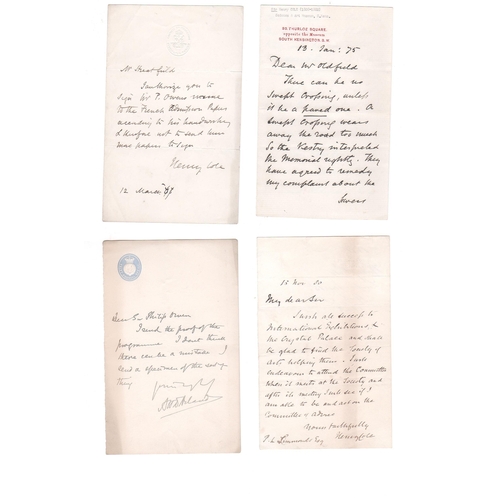 I authorize you to
sign Sir P. Owens name
to the French Papers
according to his
not to send him
more papers to sign
Henry Cole
12 March
96 THURLOE SQUARE,
opposite the Museum
SOUTH KENSINGTON. S.W.
13. Jan: 75
Dear Mr Oldfield
There can be no
Swept Crossing, unless
it be a paved one. A
Swept Crossing wears
away the road too much
So the Vestry interpreted
the Memorial rightly. They
have agreed to remedy
my complaint about the
Dear Sir Philip Owen
I send the proof of the
programme I dont think
there can be a mistake I
send a specimen of the rest of
thing
15 Nov
My dear Sir
International Exhibitions, &
the Crystal Palace and shall
be glad to find the Society of
Arts helping them. I will
endeavour to attend the Committee
when it meets at the Society and
after its meeting I will see if I
am able to be and act on the
Committee of advice
Yours faithfully
Henry Cole
P. L. Simmonds Esq